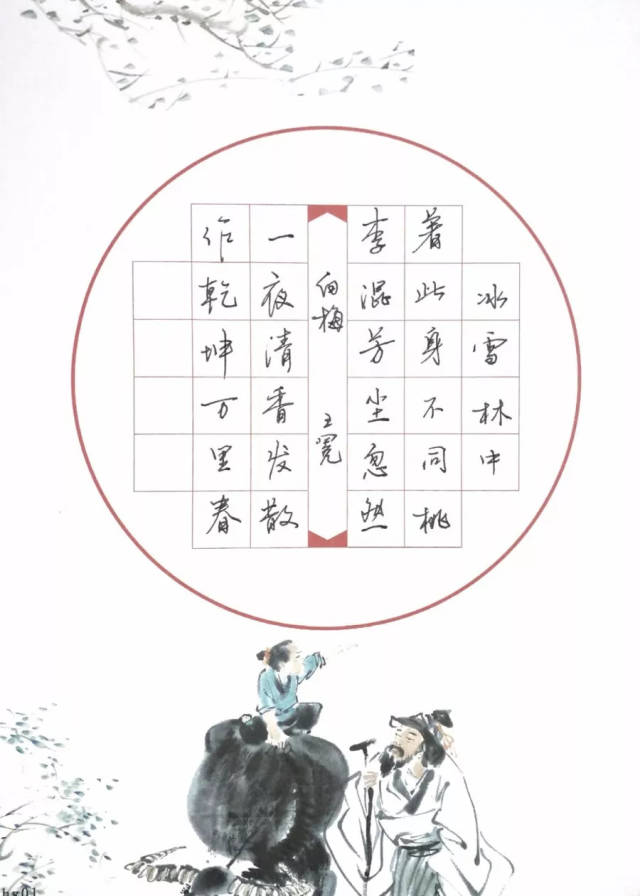 冰雪林中
著此身不同桃
李混芳尘忽然
白梅 王冕
一夜清香发散
作乾坤万里春